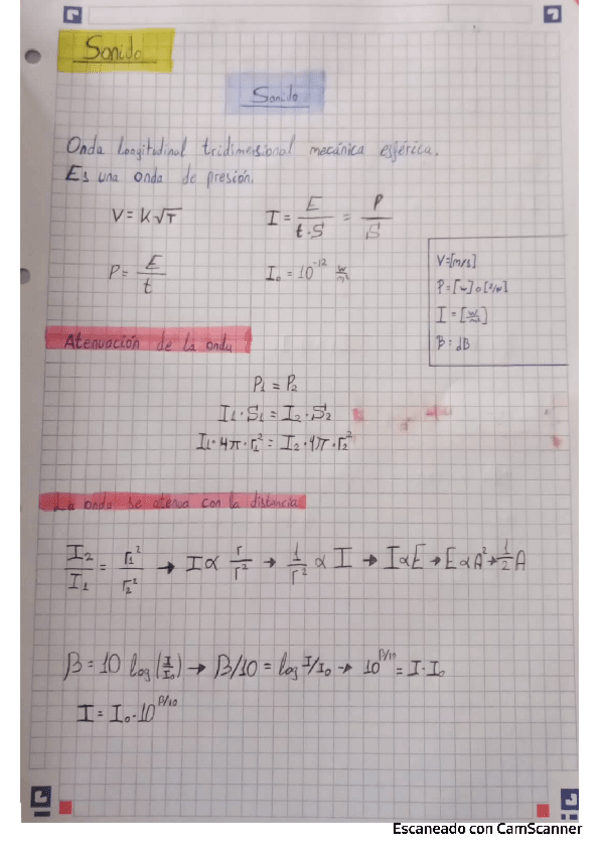 Sonido
Sonido
Onda longitudinal tridimensional mecánica esférica.
Es una onda de presión.
V = K√T
I = E / t·S = P / S
P = E / t
I₀ = 10⁻¹² W/m²
V=[m/s]
P=[W] o [J/s]
I = [W/m²]
B: dB
Atenuación de la onda
P₁ = P₂
I₁·S₁ = I₂·S₂
I₁·4π·r₁² = I₂·4π·r₂²
La onda se atenua con la distancia
I₂/I₁ = r₁²/r₂² → I α r/r² → 1/r² α I → I α E → E α A² → 1/2 A
β = 10 log(I/I₀) → β/10 = log I/I₀ → 10^β/10 = I·I₀
I = I₀·10^β/10
Escaneado con CamScanner